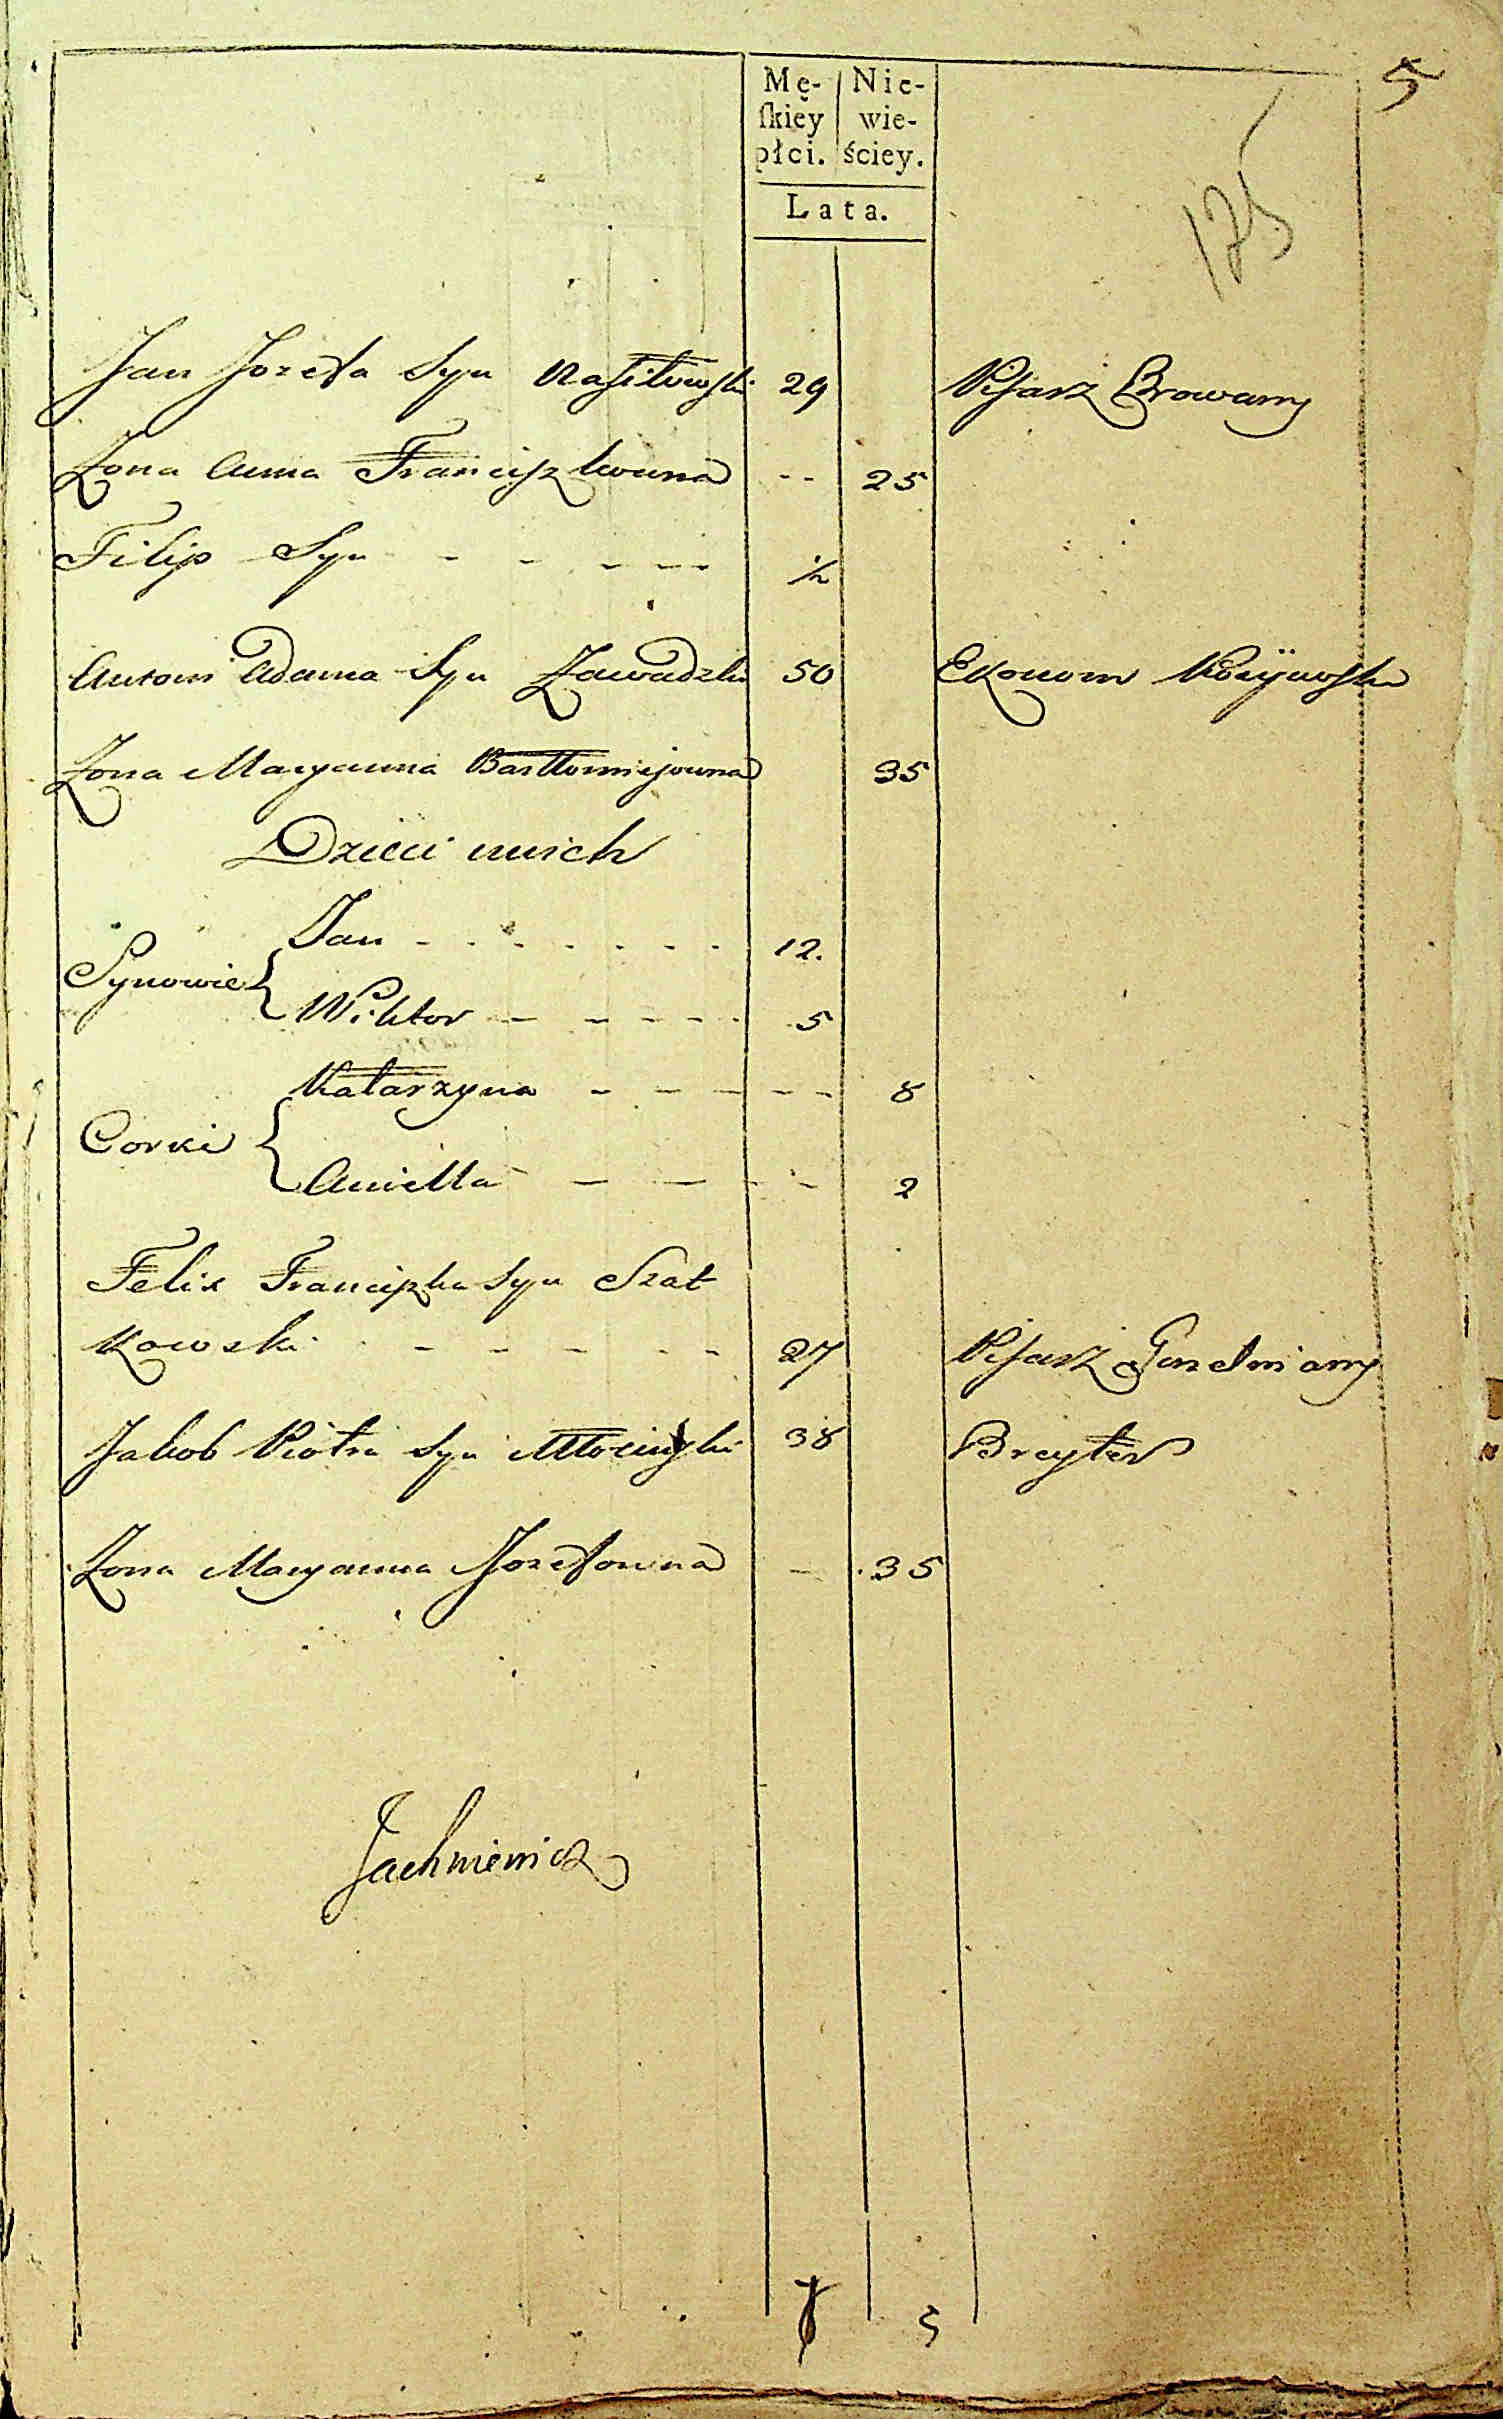 5
Mę- Nie-
ſkiey wie-
płci. ściey.
Lata.
175
Jan Jozefa Syn 29 Pisarz Browarny
Zona Anna Franciszkowna -- 25
Filip Syn - - - - - ½
Antoni Adama Syn Zawadzki 50 Ekonom
Zona Maryanna Bartłomiejowna 35
Dzieci unich
Jan - - - - - - 12.
Synowie {
Wiktor - - - - - 5
Katarzyna - - - - - 8
Corki {
Aniella - - - - 2
Felix Franciszka Syn Szat
kowski - - - - - 27 Pisarz Gorzelniany
Jakob Piotra Syn 38 Breyter
Zona Maryanna Jozefowna - 35
Jachniewicz
7 5